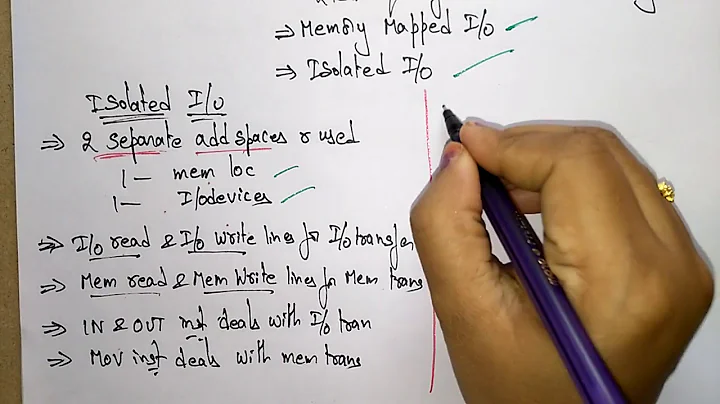 ⇒ Memory Mapped I/O
⇒ Isolated I/O
Isolated I/O
⇒ 2 separate add spaces r used
|— mem loc
|— I/odevices
⇒ I/o read & I/o write lines for I/o transfer
⇒ Mem read & Mem Write lines for Mem trans
⇒ IN & OUT inst deals with I/o tran
⇒ MOV inst deals with mem trans